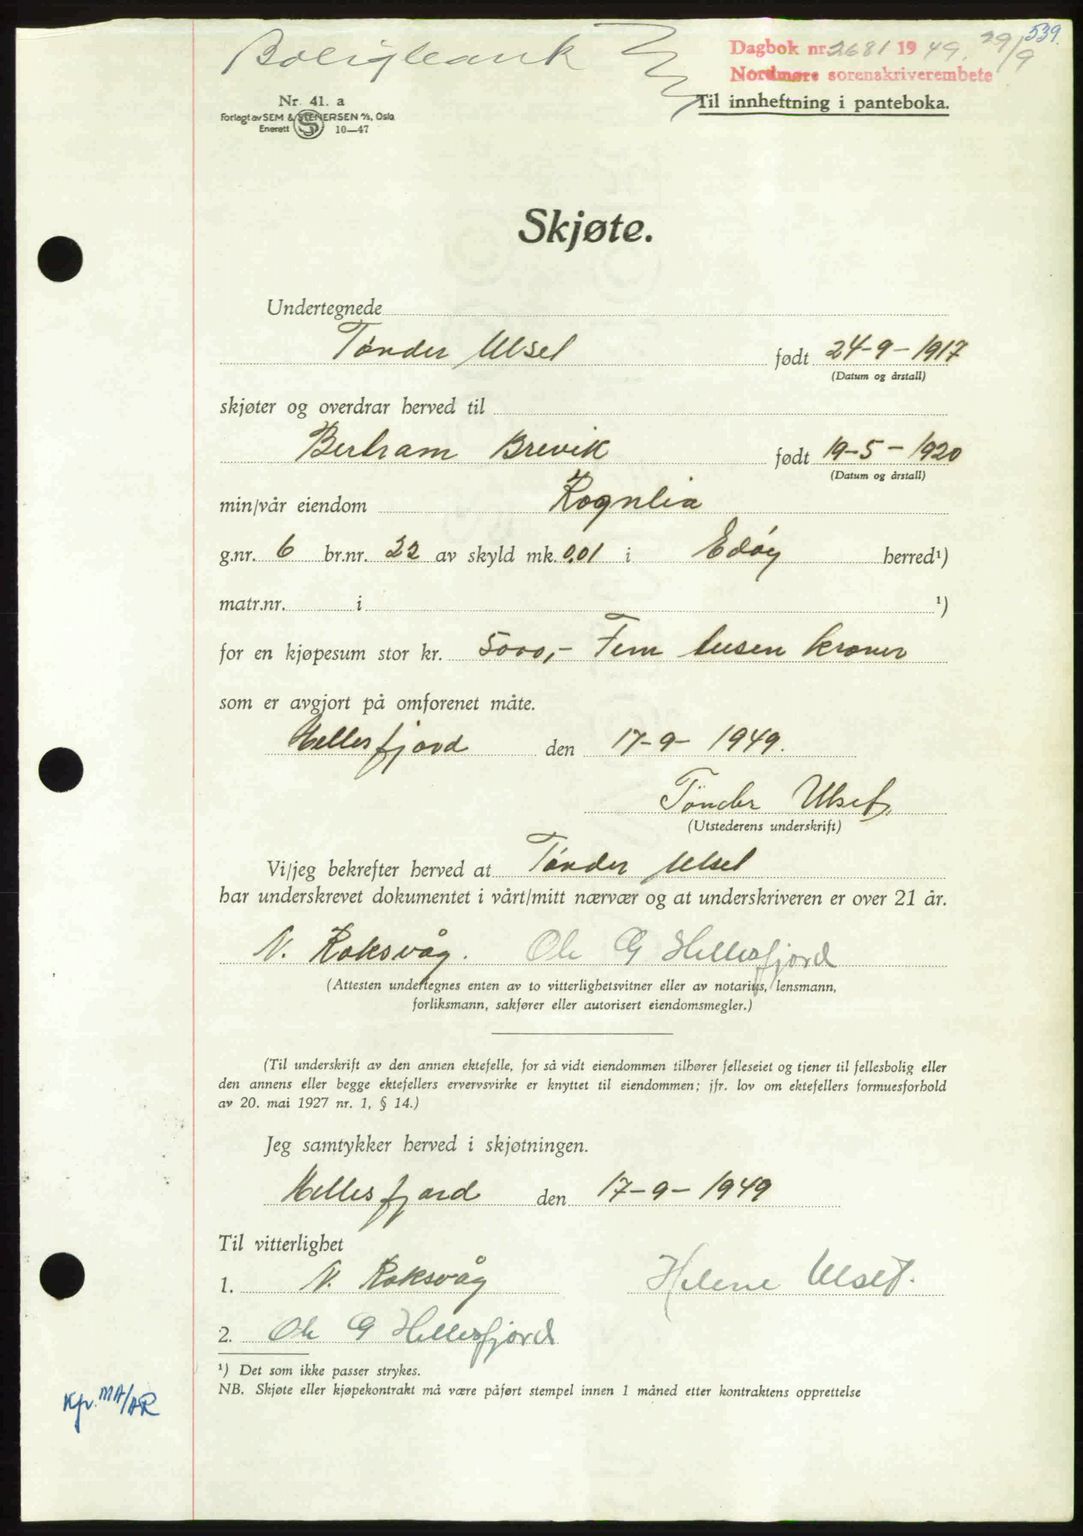 539.
Boligbank
Dagbok nr. 2681 1949. 29/9
Nordmøre sorenskriverembete
Til innheftning i panteboka.
Nr. 41. a
Forlagt av SEM & STENERSEN A/S, Oslo
Enerett S 10—47
Skjøte.
Undertegnede
Tønder Ulset født 24-9-1917
(Datum og årstall)
skjøter og overdrar herved til
Bertram Brevik født 19-5-1920
(Datum og årstall)
min/vår eiendom Rognlia
g.nr. 6 br.nr. 22 av skyld mk. 0.01 i Edøy herred¹)
matr.nr. i ¹)
for en kjøpesum stor kr. 5000,- Fem tusen kroner
som er avgjort på omforenet måte.
Hellesfjord den 17-9-1949.
Tønder Ulset
(Utstederens underskrift)
Vi/jeg bekrefter herved at Tönder Ulset
har underskrevet dokumentet i vårt/mitt nærvær og at underskriveren er over 21 år.
N. Roksvåg. Ole G Hellesfjord
(Attesten undertegnes enten av to vitterlighetsvitner eller av notarius, lensmann,
forliksmann, sakfører eller autorisert eiendomsmegler.)
(Til underskrift av den annen ektefelle, for så vidt eiendommen tilhører felleseiet og tjener til fellesbolig eller
den annens eller begge ektefellers ervervsvirke er knyttet til eiendommen; jfr. lov om ektefellers formuesforhold
av 20. mai 1927 nr. 1, § 14.)
Jeg samtykker herved i skjøtningen.
Hellesfjord den 17-9-1949
Til vitterlighet
1. N. Roksvåg Helene Ulset.
2. Ole G Hellesfjord
¹) Det som ikke passer strykes.
NB. Skjøte eller kjøpekontrakt må være påført stempel innen 1 måned etter kontraktens opprettelse
Kfr. MA/AR